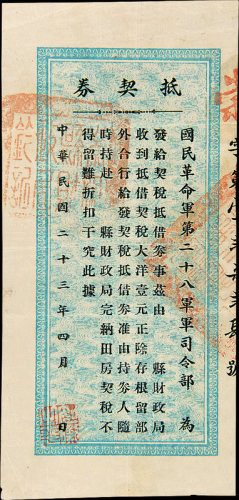 抵契券
國民革命軍第二十八軍軍司令部 為
發給契稅抵借券事茲由 縣財政局
收到抵借契稅大洋壹元正除存根留部
外合行給發契稅抵借券准由持券人隨
時持赴 縣財政局完納田房契稅不
得留難折扣干究此據
中華民國二十三年四月 日